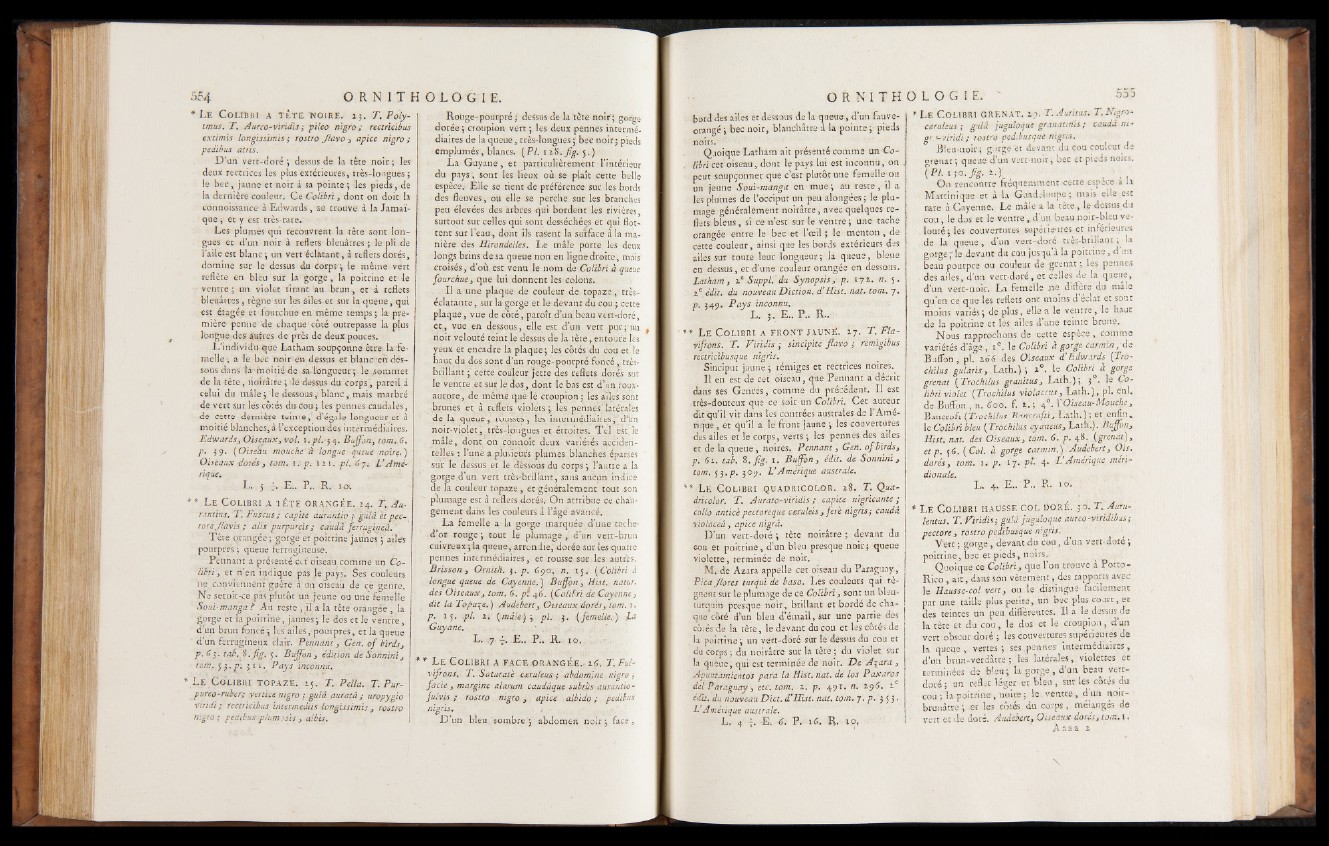 554
ORNITHOLOGIE.
* LE COLIBRI A TÊTE NOIRE. 23. T. Poly-
tmus. T. Aureo-viridis ; pileo nigro ; rectricibus
extimis longissimis ; rostro flavo, apice nigro ;
pedibus atris.
D'un vert-doré ; dessus de la tête noir ; les
deux rectrices les plus extérieures, très-longues ;
le bec, jaune et noir à sa pointe ; les pieds, de
la dernière couleur. Ce Colibri, dont on doit la
connoissance à Edwards, se trouve à la Jamaï-
que, et y est très-rare.
Les plumes qui recouvrent la tête sont lon-
gues et d'un noir à reflets bleuâtres ; le pli de
l'aile est blanc ; un vert éclatant, à reflets dorés,
domine sur le dessus du corps ; le même vert
reflète en bleu sur la gorge, la poitrine et le
ventre ; un violet tirant au brun, et à reflets
bleuâtres, règne sur les ailes et sur la queue, qui
est étagée et fourchue en même temps ; la pre-
mière penne de chaque côté outrepasse la plus
longue des autres de près de deux pouces.
L'individu que Latham soupçonne être la fe-
melle, a le bec noir en dessus et blanc en des-
sous dans la moitié de sa longueur ; le sommet
de la tête, noirâtre ; le dessus du corps, pareil à
celui du mâle ; le dessous, blanc, mais marbré
de vert sur les côtés du cou ; les pennes caudales,
de cette dernière teinte, d'égale longueur et à
moitié blanches, à l'exception des intermédiaires.
Edwards, Oiseaux, vol. 1. pl. 34. Buffon, tom. 6.
p. 39. (Oiseau mouche à longue queue noire.)
Oiseaux dorés, tom. 1. p. 121. pl. 67. L'Amé-
rique.
L. 5 ½. E.. P.. R. 10.
** LE COLIBRI A TÊTE ORANGÉE. 24. T. Au-
rantius. T. Fuscus ; capite aurantio ; gulâ et pec-
tore flavis ; alis purpureis ; caudâ ferrugineâ.
Tête orangée ; gorge et poitrine jaunes ; ailes
pourpres ; queue ferrugineuse.
Pennant a présenté cet oiseau comme un Co-
libri, et n'en indique pas le pays. Ses couleurs
ne conviennent guère à un oiseau de ce genre.
Ne seroit-ce pas plutôt un jeune ou une femelle
Soui-manga ? Au reste, il a la tête orangée, la
gorge et la poitrine, jaunes ; le dos et le ventre,
d'un brun foncé ; les ailes, pourpres, et la queue
d'un ferrugineux clair. Pennant, Gen. of birds,
p. 63. tab. 8. fig. 5. Buffon, édition de Sonnini,
tom. 53. p. 311. Pays inconnu.
* LE COLIBRI TOPAZE. 25. T. Pella. T. Pur-
pureo-ruber ; vertice nigro ; gulâ auratâ ; uropygio
viridi ; rectricibus intermediis longissimis, rostro
nigro ; pedibus plumosis, albis.
Rouge-pourpré ; dessus de la tête noir ; gorge
dorée ; croupion vert ; les deux pennes intermé-
diaires de la queue, très-longues ; bec noir ; pieds
emplumés, blancs. (Pl. 128. fig. 5.)
La Guyane, et particulièrement l'intérieur
du pays, sont les lieux où se plaît cette belle
espèce. Elle se tient de préférence sur les bords
des fleuves, ou elle se perche sur les branches
peu élevées des arbres qui bordent les rivières,
surtout sur celles qui sont desséchées et qui flot-
tent sur l'eau, dont ils rasent la surface à la ma-
nière des Hirondelles. Le mâle porte les deux
longs brins de sa queue non en ligne droite, mais
croisés, d'où est venu le nom de Colibri à queue
fourchue, que lui donnent les colons.
Il a une plaque de couleur de topaze, très-
éclatante, sur la gorge et le devant du cou ; cette
plaque, vue de côté, paroît d'un beau vert-doré,
et, vue en dessous, elle est d'un vert pur ; un
noir velouté teint le dessus de la tête, entoure les
yeux et encadre la plaque ; les côtés du cou et le
haut du dos sont d'un rouge-pourpré foncé, très-
brillant ; cette couleur jette des reflets dorés sur
le ventre et sur le dos, dont le bas est d'un roux-
aurore, de même que le croupion ; les ailes sont
brunes et à reflets violets ; les pennes latérales
de la queue, rousses, les intermédiaires, d'un
noir-violet, très-longues et étroites. Tel est le
mâle, dont on connoît deux variétés acciden-
telles : l'une a plusieurs plumes blanches éparses
sur le dessus et le dessous du corps ; l'autre a la
gorge d'un vert très-brillant, sans aucun indice
de la couleur topaze, et généralement tout son
plumage est à reflets dorés. On attribue ce chan-
gement dans les couleurs à l'âge avancé.
La femelle a la gorge marquée d'une tache
d'or rouge ; tout le plumage, d'un vert-brun
cuivreux ; la queue, arrondie, dorée sur les quatre
pennes intermédiaires, et rousse sur les autres.
Brisson, Ornith. 3. p. 690, n. 15. (Colibri à
longue queue de Cayenne.) Buffon, Hist. natur.
des Oiseaux, tom. 6. pl. 46. (Colibri de Cayenne,
dit la Topaze.) Audebert, Oiseaux dorés, tom. 1.
p. 15. pl. 2. (mâle) ; pl. 3. (femelle.) La
Guyane.
L. 7 ½. E.. P.. R. 10.
** LE COLIBRI A FACE ORANGÉE. 26. T. Ful-
vifrons. T. Saturatè cæruleus ; abdomine nigro ;
facie, margine alarum caudâque subtùs aurantio-
fulvis ; rostro nigro, apice albido ; pedibus
nigris.
D'un bleu sombre ; abdomen noir ; face,
ORNITHOLOGIE.
555
bord des ailes et dessous de la queue, d'un fauve-
orangé ; bec noir, blanchâtre à la pointe ; pieds
noirs.
Quoique Latham ait présenté comme un Co-
libri cet oiseau, dont le pays lui est inconnu, on
peut soupçonner que c'est plutôt une femelle ou
un jeune Soui-manga en mue ; au reste, il a
les plumes de l'occiput un peu alongées ; le plu-
mage généralement noirâtre, avec quelques re-
flets bleus, si ce n'est sur le ventre ; une tache
orangée entre le bec et l'œil ; le menton, de
cette couleur, ainsi que les bords extérieurs des
ailes sur toute leur longueur ; la queue, bleue
en dessus, et d'une couleur orangée en dessous.
Latham, 2e Suppl. du Synopsis, p. 172. n. 5.
2e édit. du nouveau Diction. d'Hist. nat. tom. 7.
p. 349. Pays inconnu.
L. 3. E.. P.. R..
** LE COLIBRI A FRONT JAUNE. 27. T. Fla-
vifrons. T. Viridis ; sincipite flavo ; remigibus
rectricibusque nigris.
Sinciput jaune ; rémiges et rectrices noires.
Il en est de cet oiseau, que Pennant a décrit
dans ses Genres, comme du précédent. Il est
très-douteux que ce soit un Colibri. Cet auteur
dit qu'il vit dans les contrées australes de l'Amé-
rique, et qu'il a le front jaune ; les couvertures
des ailes et le corps, verts ; les pennes des ailes
et de la queue, noires. Pennant, Gen. of birds,
p. 62. tab. 8. fig. 1. Buffon, édit. de Sonnini,
tom. 53. p. 309. L'Amérique australe.
** LE COLIBRI QUADRICOLOR. 28. T. Qua-
dricolor. T. Aurato-viridis ; capite nigricante ;
collo anticè pectoreque cæruleis, ferè nigris ; caudâ
violaceâ, apice nigrâ.
D'un vert-doré ; tête noirâtre ; devant du
cou et poitrine, d'un bleu presque noir ; queue
violette, terminée de noir.
M. de Azara appelle cet oiseau du Paraguay,
Pica flores turqui de baxo. Les couleurs qui rè-
gnent sur le plumage de ce Colibri, sont un bleu-
turquin presque noir, brillant et bordé de cha-
que côté d'un bleu d'émail, sur une partie des
côtés de la tête, le devant du cou et les côtés de
la poitrine ; un vert-doré sur le dessus du cou et
du corps ; du noirâtre sur la tête ; du violet sur
la queue, qui est terminée de noir. De Azara,
Apuntamientos para la Hist. nat. de los Paxaros
del Paraguay, etc. tom. 2. p. 491. n. 296. 2e
édit. du nouveau Dict. d'Hist. nat. tom. 7. p. 353.
L'Amérique australe.
L. 4 ½. E. 6. P. 16. R. 10.
* LE COLIBRI GRENAT. 29. T. Auritus. T. Nigro-
cæruleus ; gulâ juguloque granatinis ; caudâ ni-
gro-viridi ; rostro pedibusque nigris.
Bleu-noir ; gorge et devant du cou couleur de
grenat ; queue d'un vert-noir, bec et pieds noirs.
(Pl. 130. fig. 2.)
On rencontre fréquemment cette espèce à la
Martinique et à la Guadeloupe ; mais elle est
rare à Cayenne. Le mâle a la tête, le dessus du
cou, le dos et le ventre, d'un beau noir-bleu ve-
louté ; les couvertures supérieures et inférieures
de la queue, d'un vert-doré très-brillant ; la
gorge, le devant du cou jusqu'à la poitrine, d'un
beau pourpre ou couleur de grenat ; les pennes
des ailes, d'un vert-doré, et celles de la queue,
d'un vert-noir. La femelle ne diffère du mâle
qu'en ce que les reflets ont moins d'éclat et sont
moins variés ; de plus, elle a le ventre, le haut
de la poitrine et les ailes d'une teinte brune.
Nous rapprochons de cette espèce, comme
variétés d'âge, 1°. le Colibri à gorge carmin, de
Buffon, pl. 266 des Oiseaux d'Edwards (Tro-
chilus gularis, Lath.) ; 2°. le Colibri à gorge
grenat (Trochilus granitus, Lath.) ; 3°. le Co-
libri violet (Trochilus violaceus, Lath.), pl. enl.
de Buffon, n. 600. f. 2. ; 4°. l'Oiseau-Mouche,
Bancroft (Trochilus Bancrofti, Lath.) ; et enfin,
le Colibri bleu (Trochilus cyaneus, Lath.). Buffon,
Hist. nat. des Oiseaux, tom. 6. p. 48. (grenat),
et p. 56. (Col. à gorge carmin.) Audebert, Ois.
dorés, tom. 1. p. 17. pl. 4. L'Amérique méri-
dionale.
L. 4. E.. P.. R. 10.
* LE COLIBRI HAUSSE COL DORÉ. 30. T. Auru-
lentus. T. Viridis ; gulâ juguloque aureo-viridibus ;
pectore, rostro pedibusque nigris.
Vert ; gorge, devant du cou, d'un vert-doré ;
poitrine, bec et pieds, noirs.
Quoique ce Colibri, que l'on trouve à Porto-
Rico, ait, dans son vêtement, des rapports avec
le Hausse-col vert, on le distingue facilement
par une taille plus petite, un bec plus court, et
des teintes un peu différentes. Il a le dessus de
la tête et du cou, le dos et le croupion, d'un
vert obscur doré ; les couvertures supérieures de
la queue, vertes ; ses pennes intermédiaires,
d'un brun-verdâtre ; les latérales, violettes et
terminées de bleu ; la gorge, d'un beau vert-
doré ; un reflet léger et bleu, sur les côtés du
cou ; la poitrine, noire ; le ventre, d'un noir-
brunâtre ; et les côtés du corps, mélangés de
vert et de doré. Audebert, Oiseaux dorés, tom. 1.
Aaaa 2